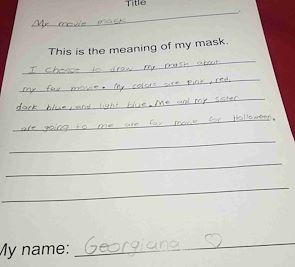 Title
My movie mask.
This is the meaning of my mask.
I choose to draw my mask about
my fav movie. My colors are pink, red,
dark blue, and light blue. Me and my sister
are going to me are for movie for Halloween.
My name: Georgiana ♡